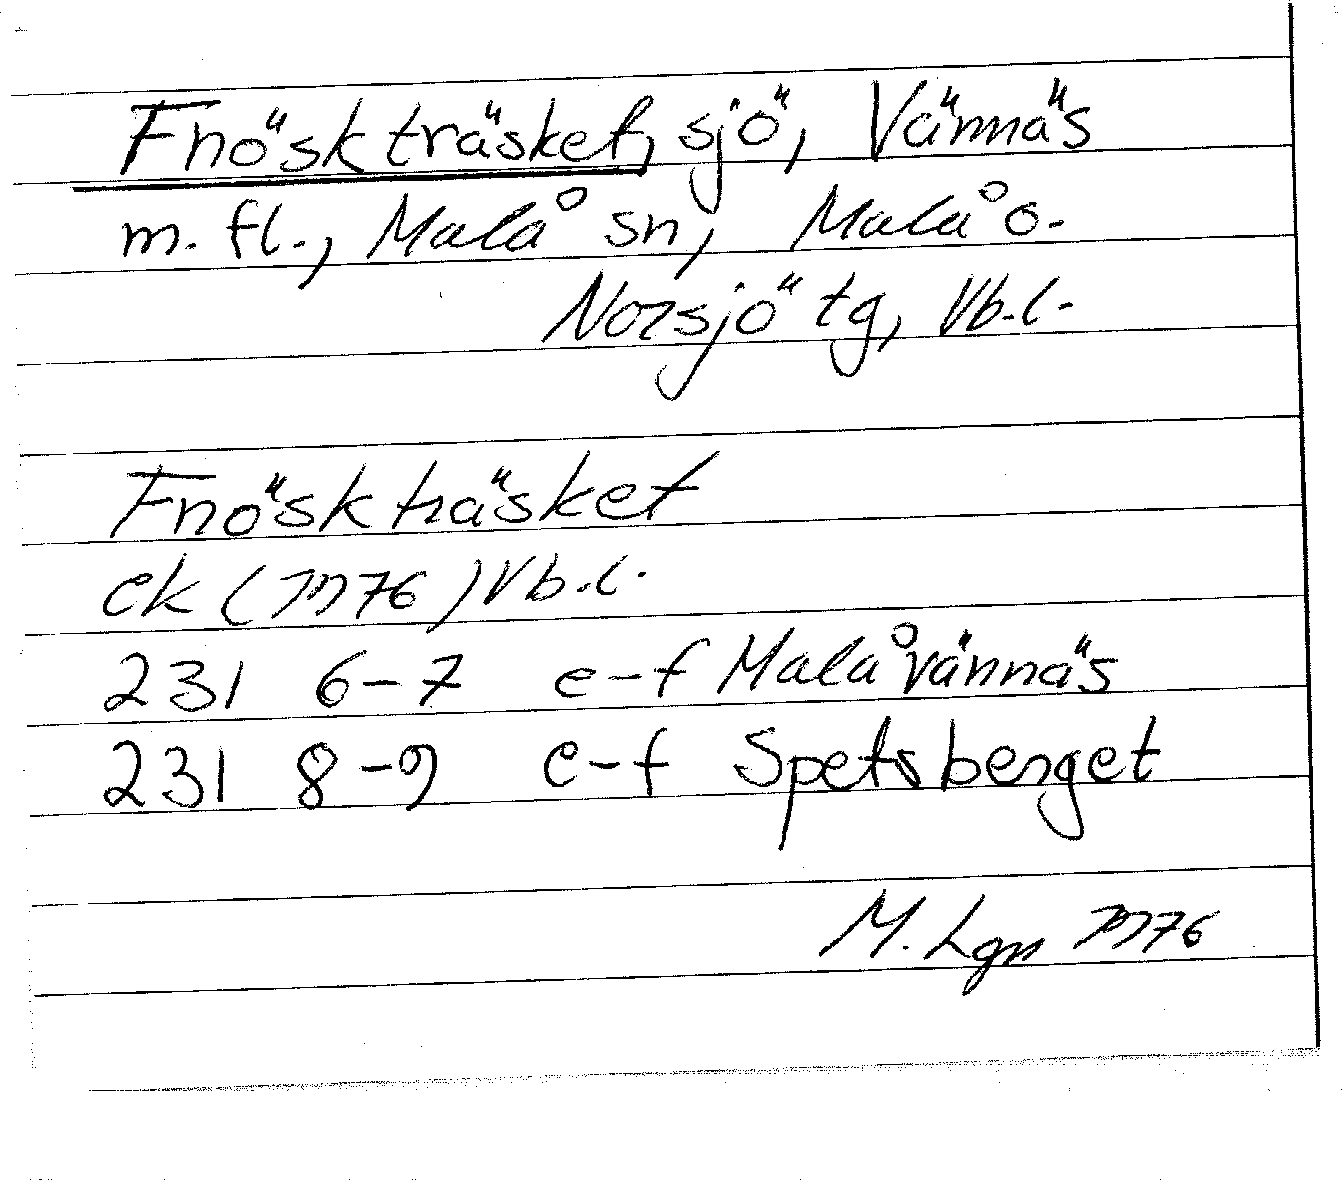 Fnöskträsket, sjö, Vännäs
m. fl., Malå sn, Malå o.
Norsjö tg, Vb.l.
Fnöskträsket
ek (1976) Vb.l.
231 6-7 e-f Malåvännäs
231 8-9 e-f Spetsberget
M. Lgn 1976